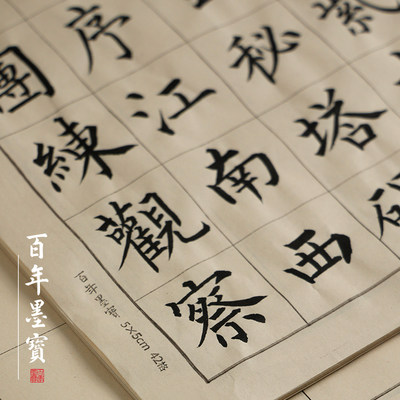 秘塔
序江南西
團練觀察
百年墨寶 5X5cm 42格
百年墨寶